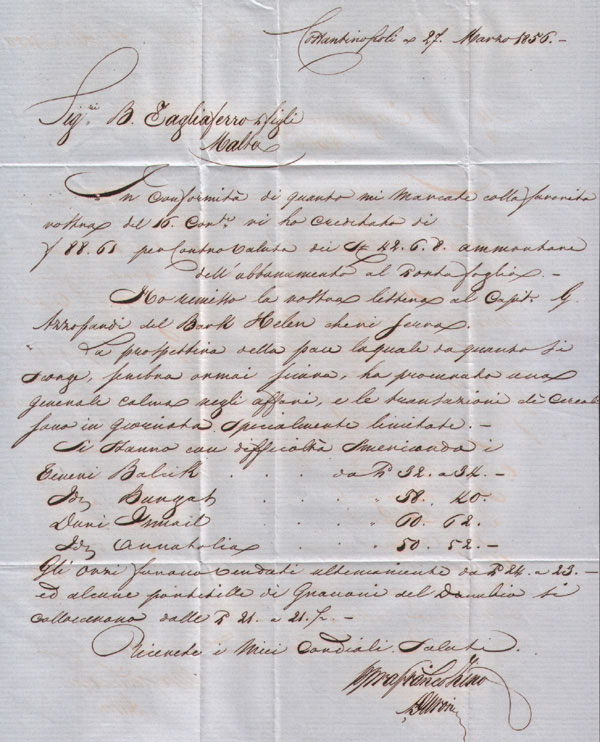 Costantinopoli 27. Marzo 1856.-
Sig.ri B. Tagliaferro figli
Malta
In conformità di quanto mi marcate colla favorita
vostra del 16 Corr.te vi ho creditato di
f 88.61 per Controvaluta dei 42.6.8. ammontare
dell'abbonamento al Portafoglio.-
Ho rimesso la vostra lettera al Capit. G.
Azzopardi del Bark Helen che vi serva.
La prospettiva della pace la quale da quanto si
scorge, sembra ormai sicura, ha procurato una
generale calma negli affari, e le transazioni di Cereali
sono in giornata specialmente limitate.-
Si stanno con difficoltà smerciando i
Teneri Balcik . . . da P 32. a 34.-
Id. Burgas . . . " 38. 40.
Duri Ismail . . . " 60. 62.
Id. Annatolia . . . " 50. 52.-
Gli Orzi furono venduti ultimamente da P 24. a 23.-
ed alcune partitelle di Granoni del Danubio si
collocarono dalle P 21. a 21.½-
Ricevete i miei Cordiali Saluti.